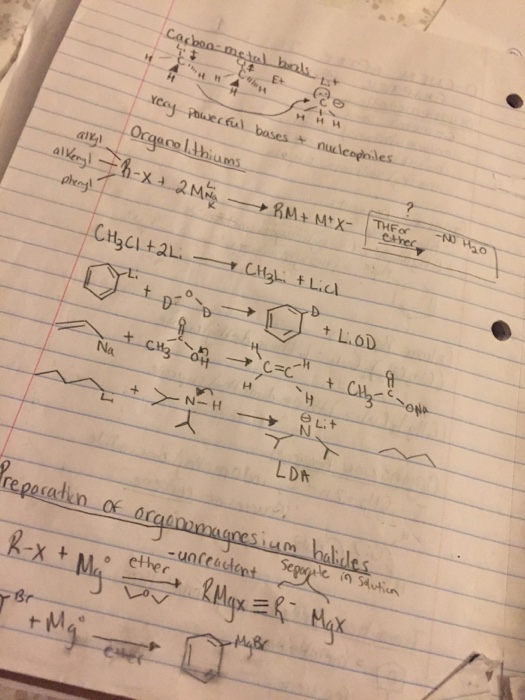 Carbon-metal bonds
Li δ+ E+ Li+
H C H C H C ⊖
H H H H H
very powerful bases + nucleophiles
Organolithiums
alkyl
alkenyl
phenyl
R-X + 2M Li Na K → RM + M+X-
?
THF or ether
-No H2O
CH3Cl + 2Li → CH3Li + LiCl
Li + D-O-D → D + LiOD
Na + CH3 C O OH → H H C=C H H + CH3-C O ONa
Li + N-H → ⊖ N Li+
LDA
Preparation of organomagnesium halides
-unreactent
separate in solution
R-X + Mg° ether → RMgX ≡ R- MgX
Br + Mg° ether → MgBr